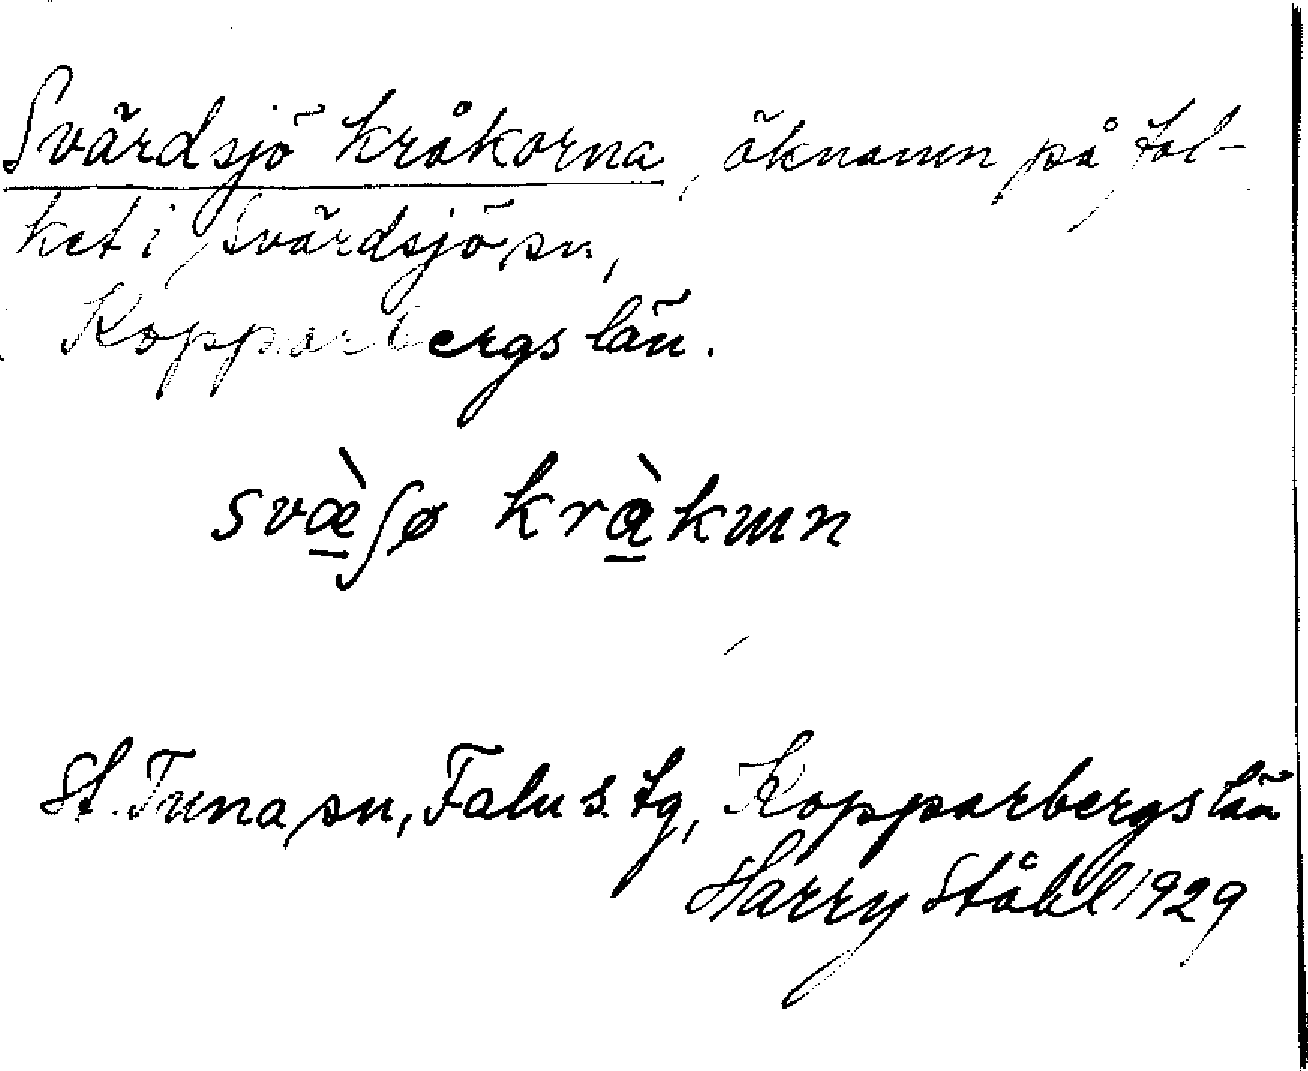 Svärdsjö kråkorna, öknamn på fol-
ket i Svärdsjö sn,
Kopparbergs län.
svæ̱̀ʃø krà̱kɯn
St. Tuna sn, Falu s. tg, Kopparbergs län
Harry Ståhl 1929